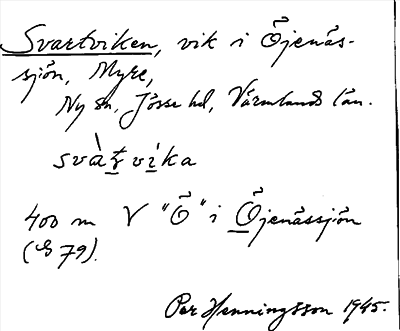 Svartviken, vik i Öjenäs-
sjön, Myre,
Ny sn, Jösse hd, Värmlands län.
svàt̠ vi̠ka
400 m V "Ö" i Öjenässjön
(S 79).
Per Henningsson 1945.